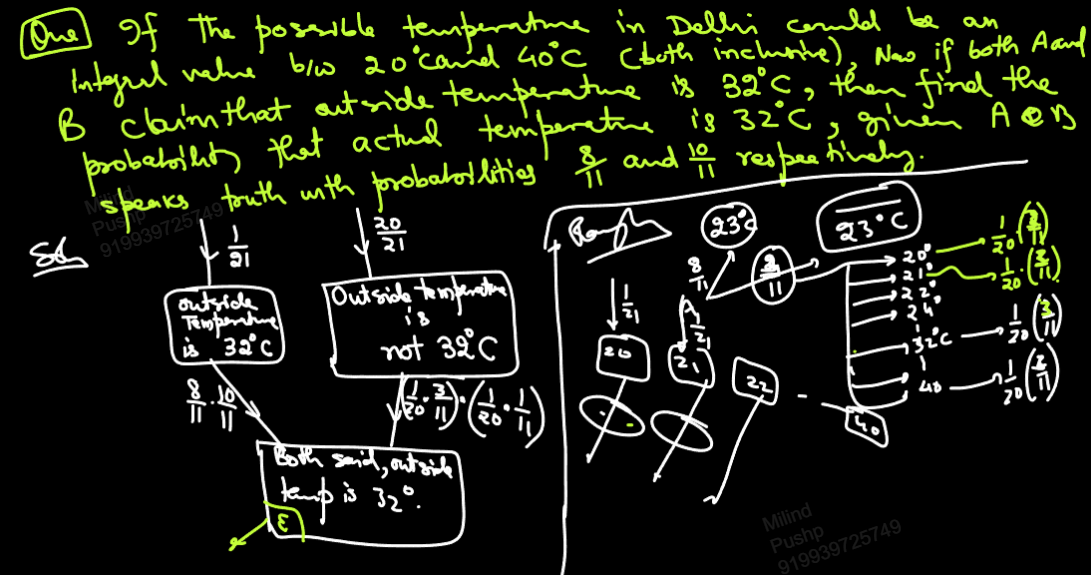 Que If The possible temperature in Delhi could be an
integral value b/w 20°C and 40°C (both inclusive), Now if both A and
B claim that outside temperature is 32°C, then find the
probability that actual temperature is 32°C, given A & B
speaks truth with probabilities 8/11 and 10/11 respectively.
Milind
Pushp
919939725749
Sol
1/21
20/21
outside
Temperature
is 32°C
Outside temperature
is
not 32°C
8/11 · 10/11
(1/20 · 3/11) · (1/20 · 1/11)
Both said, outside
temp is 32°.
E
Rough
23°C
23°C
8/11
3/11
A
1/21
1/21
20
21
22
- -
40
20° 1/20 (3/11)
21° 1/20 · (3/11)
22°
24°
32°C 1/20 (3/11)
40 1/20 (3/11)
Milind
Pushp
919939725749